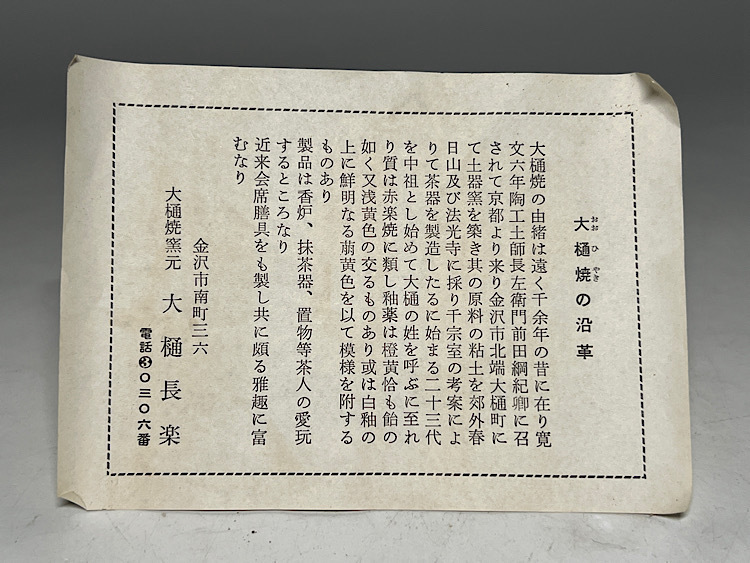 大樋焼の沿革
おおひやき
大樋焼の由緒は遠く千余年の昔に在り寛
文六年陶工土師長左衛門前田綱紀卿に召
されて京都より来り金沢市北端大樋町に
て土器窯を築き其の原料の粘土を郊外春
日山及び法光寺に採り千宗室の考案によ
りて茶器を製造したるに始まる二十三代
を中祖とし始めて大樋の姓を呼ぶに至れ
り質は赤楽焼に類し釉薬は橙黄恰も飴の
如く又浅黄色の交るものあり或は白釉の
上に鮮明なる萠黄色を以て模様を附する
ものあり
製品は香炉、抹茶器、置物等茶人の愛玩
するところなり
近来会席膳具をも製し共に頗る雅趣に富
むなり
金沢市南町三六
大樋焼窯元 大樋長楽
電話③〇三〇六番